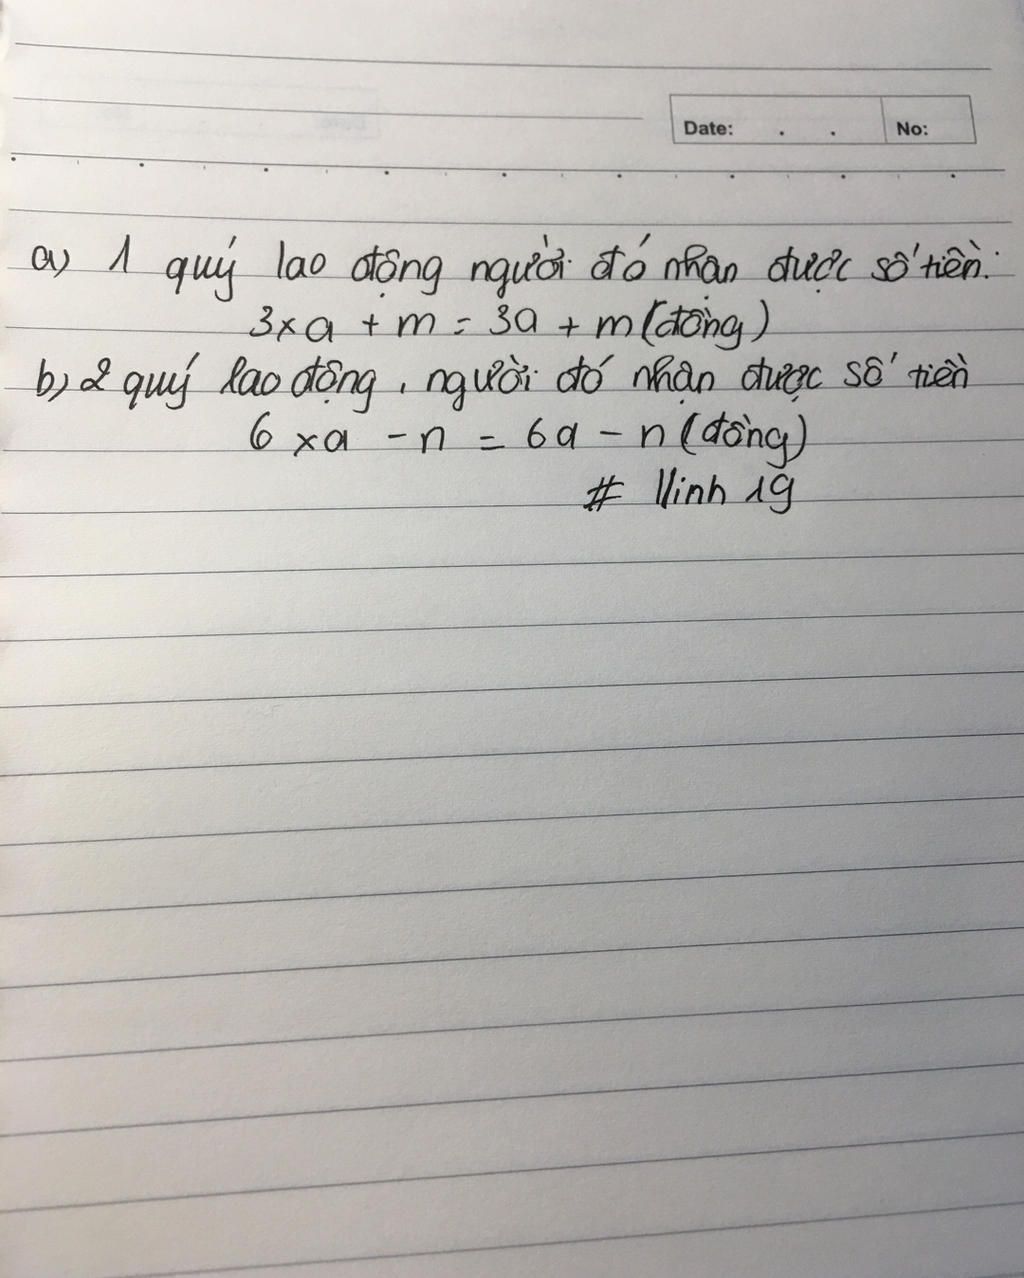 Date: . . No:
a) 1 quý lao động người đó nhận được số tiền:
3 x a + m = 3a + m (đồng)
b) 2 quý lao động, người đó nhận được số tiền
6 x a - n = 6a - n (đồng)
# Vinh 19